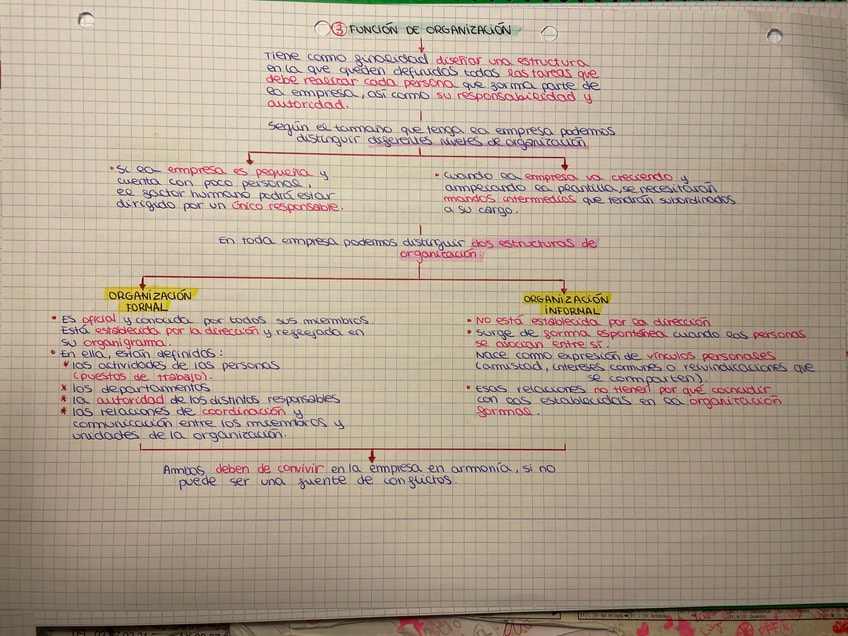 ③ FUNCIÓN DE ORGANIZACIÓN
Tiene como finalidad diseñar una estructura
en la que queden definidos todos las tareas que
debe realizar cada persona que forma parte de
la empresa, así como su responsabilidad y
autoridad.
Según el tamaño que tenga la empresa podemos
distinguir diferentes niveles de organización
• Si la empresa es pequeña y
cuenta con poco personal,
el factor humano podrá estar
dirigido por un único responsable.
• Cuando la empresa va creciendo y
ampliando la plantilla, se necesitarán
mandos intermedios que tendrán subordinados
a su cargo.
En toda empresa podemos distinguir dos estructuras de
organización:
ORGANIZACIÓN
FORMAL
• Es oficial y conocida por todos sus miembros.
Está establecida por la dirección y reflejada en
su organigrama.
• En ella, están definidos:
* las actividades de las personas
(puestos de trabajo).
* los departamentos
* la autoridad de los distintos responsables
* las relaciones de coordinación y
comunicación entre los miembros y
unidades de la organización.
ORGANIZACIÓN
INFORMAL
• No está establecida por la dirección
• Surge de forma espontánea cuando las personas
se asocian entre sí.
Nace como expresión de vínculos personales
(amistad, intereses comunes o reivindicaciones que
se comparten).
• Esas relaciones no tienen por qué coincidir
con las establecidas en la organización
formal.
Ambas deben de convivir en la empresa en armonía, si no
puede ser una fuente de conflictos.